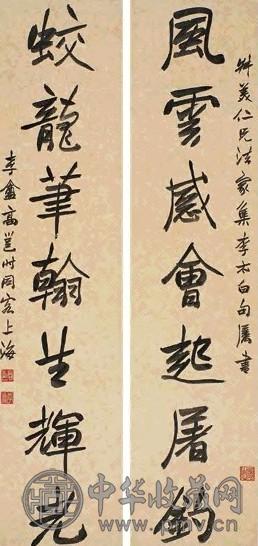 美仁兄法家集李太白句屬書
風雲感會起屠釣
蛟龍筆翰生輝光
李盦高邕時同客上海
中华收藏网
www.pmv.cn